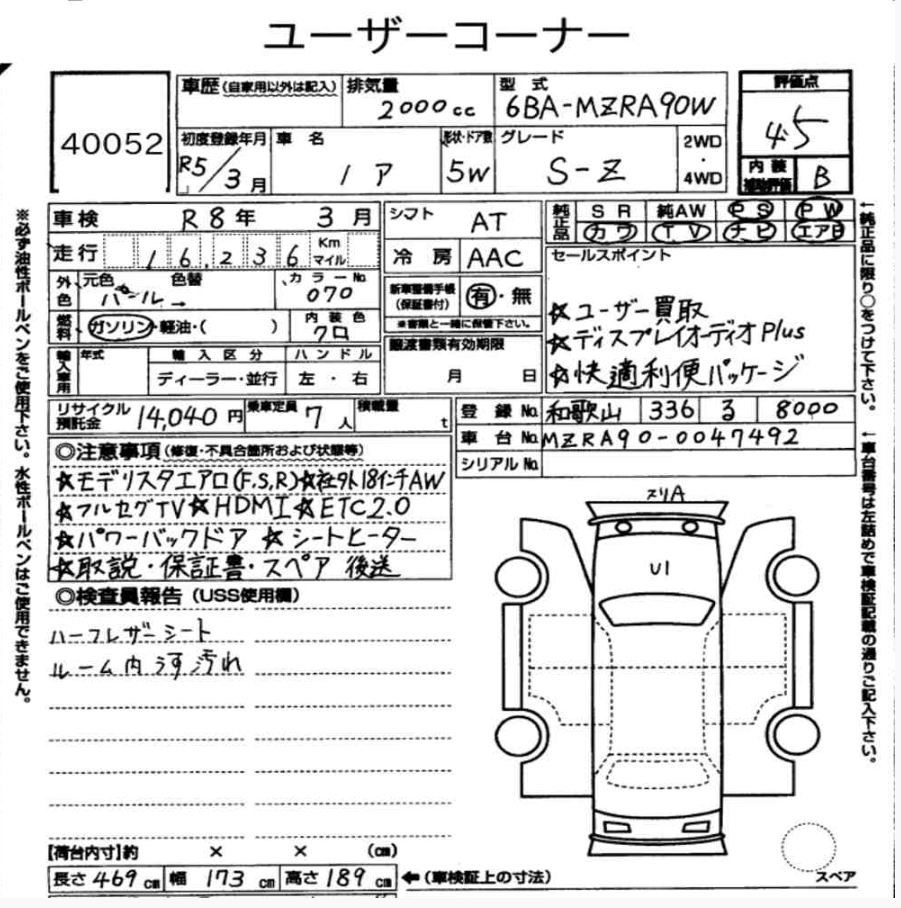 ユーザーコーナー
40052
車歴(自家用以外は記入)
排気量 2000cc
型式 6BA-MZRA90W
評価点 4.5
初度登録年月 R5/3月
車名 ノア
形状・ドア数 5W
グレード S-Z
2WD・4WD
内装補助評価 B
車検 R8年 3月
シフト AT
純正品 SR 純AW PS PW
カワ TV ナビ エアB
走行 16,236 Km マイル
冷房 AAC
セールスポイント
外色 元色 パール → 色替
カラーNo. 070
新車整備手帳(保証書付) 有・無
※書類と一緒に保管下さい。
☆ユーザー買取
☆ディスプレイオーディオPlus
☆快適利便パッケージ
燃料 ガソリン・軽油・( )
内装色 クロ
譲渡書類有効期限
月 日
輸入車用 年式
輸入区分 ディーラー・並行
ハンドル 左・右
リサイクル預託金 14,040円
乗車定員 7人
積載量 t
登録No. 和歌山 336 る 8000
車台No. MZRA90-0047492
シリアルNo.
◎注意事項(修復・不具合箇所および状態等)
☆モデリスタエアロ(F.S.R)☆社外18インチAW
☆フルセグTV☆HDMI☆ETC2.0
☆パワーバックドア ☆シートヒーター
☆取説・保証書・スペア 後送
◎検査員報告(USS使用欄)
ハーフレザーシート
ルーム内 汚れ
スリA
U1
【荷台内寸】約 × × (cm)
長さ469cm 幅 173cm 高さ189cm ←(車検証上の寸法)
スペア
※必ず油性ボールペンをご使用下さい。水性ボールペンはご使用できません。
←純正品に限り○をつけて下さい。
←車台番号は左詰めで車検証記載の通りご記入下さい。